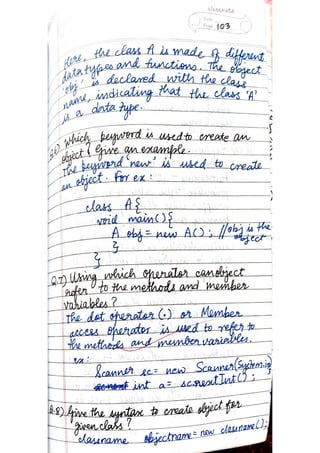 classmate
Date
Page 103
Here, the class A is made of different
data types and functions. The object
'obj' is declared with the class
name, indicating that the class 'A'
is a data type.
Q.6) Which keyword is used to create an
object? Give an example.
The keyword 'new' is used to create
an object. For ex:
class A{
void main(){
A obj = new A(); //obj is the
object
}
}
Q.7) Using which operator can object
refer to the methods and member
variables?
The dot operator (.) or Member
access operator is used to refer to
the methods and member variables.
ex:
Scanner sc = new Scanner(System.in)
int a = sc.nextInt();
Q.8) Give the syntax to create object for
given class?
classname objectname = new classname();